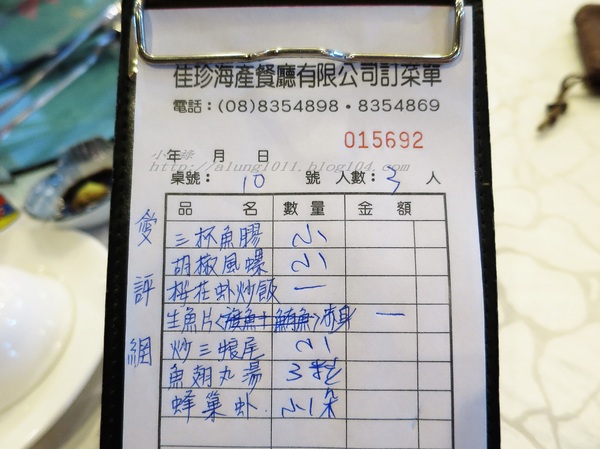 佳珍海產餐廳有限公司訂菜單
電話：(08)8354898・8354869
015692
小綠
年 月 日
http://alung1011.blog104.com
桌號： 10 號 人數：3 人
品名 數量 金額
愛評網
三杯魚腸 小
胡椒風螺 小
櫻花虾炒飯 一
生魚片 赤身 一
炒三 尾 小
魚翅丸湯 3
蜂巢虾. 小1朵